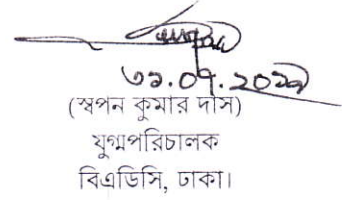 ৩১.০৭.২০১৯
(স্বপন কুমার দাস)
যুগ্মপরিচালক
বিএডিসি, ঢাকা।